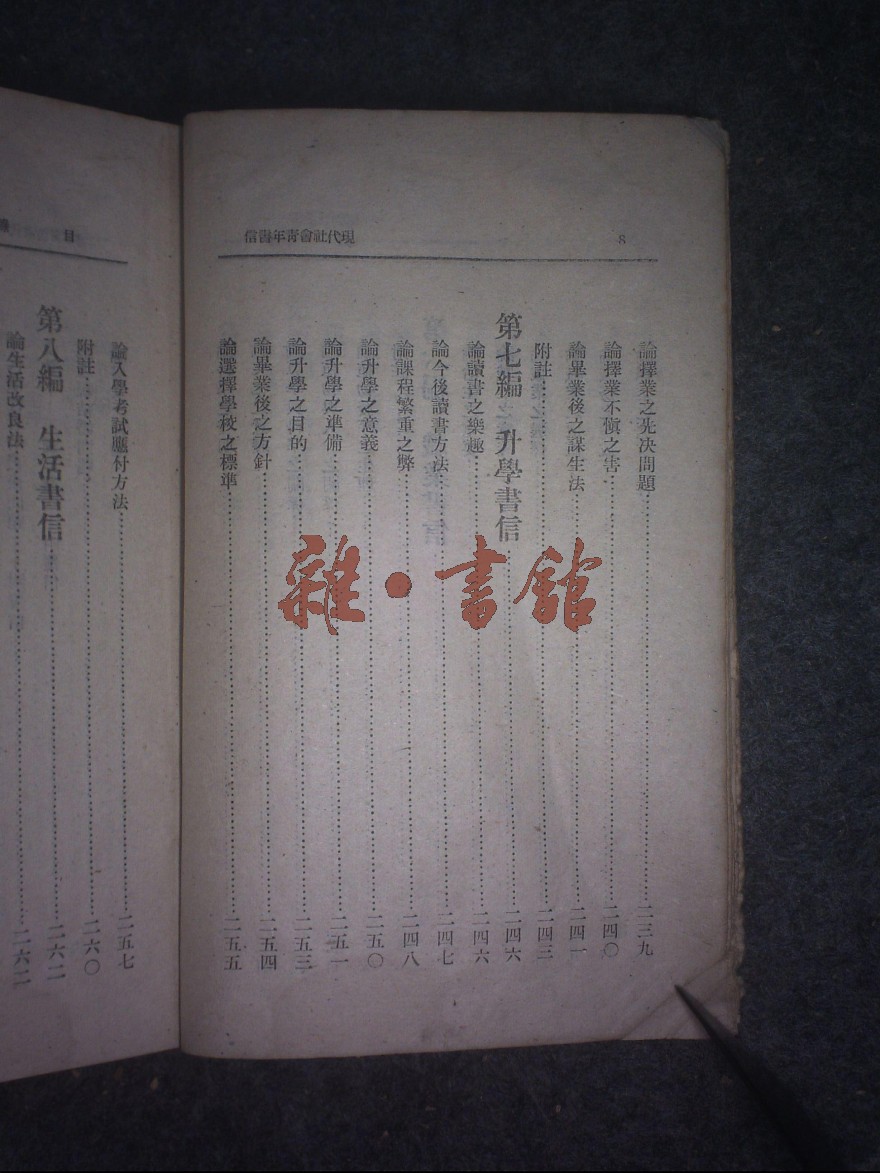 8
現代社會靑年書信
論擇業之先决問題……二三九
論擇業不愼之害……二四〇
論畢業後之謀生法……二四一
附註……二四三
第七編 升學書信……二四六
論讀書之樂趣……二四六
論今後讀書方法……二四七
論課程繁重之弊……二四八
論升學之意義……二五〇
論升學之準備……二五一
論升學之目的……二五三
論畢業後之方針……二五四
論選擇學校之標準……二五五
目
論入學考試應付方法……二五七
附註……二六〇
第八編 生活書信……二六二
論生活改良法……二六二
雜·書館